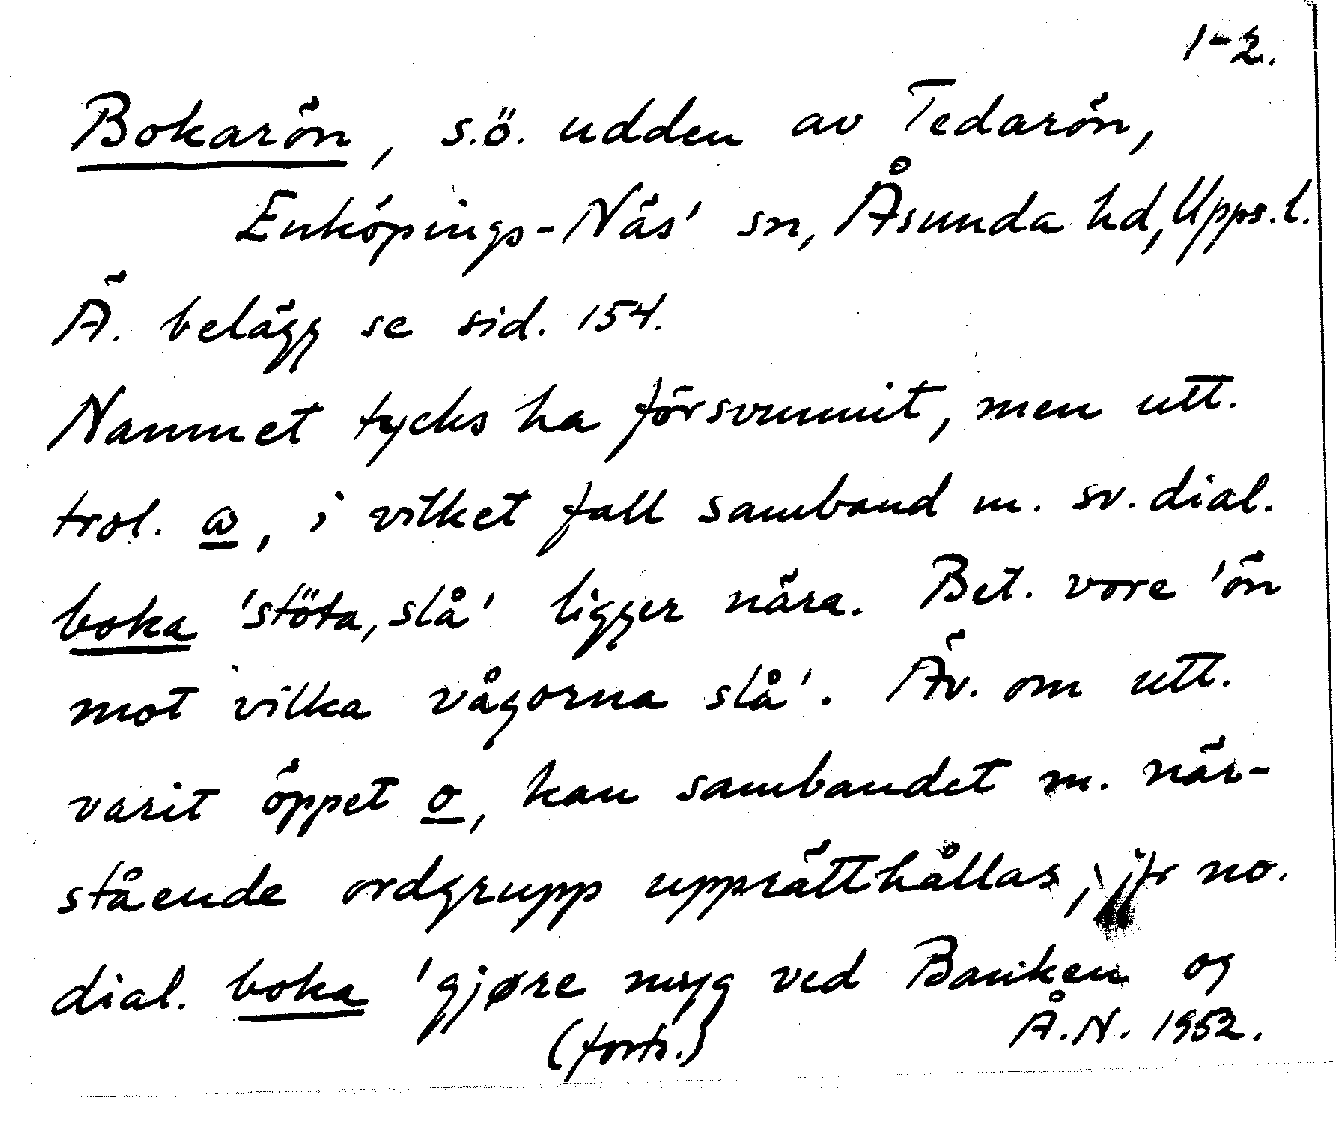 1-2.
Bokarön, s.ö. udden av Tedarön,
Enköpings-Näs' sn, Åsunda hd, Upps. l.
Ä. belägg se sid. 154.
Namnet tycks ha försvunnit, men utt.
trol. ω, i vilket fall samband m. sv. dial.
boka 'stöta, slå' ligger nära. Bet. vore 'ön
mot vilka vågorna slå'. Äv. om utt.
varit öppet o, kan sambandet m. när-
stående ordgrupp upprätthållas, jfr no.
dial. boka 'gjøre myg ved Banken og
(forts.) Å.N. 1952.